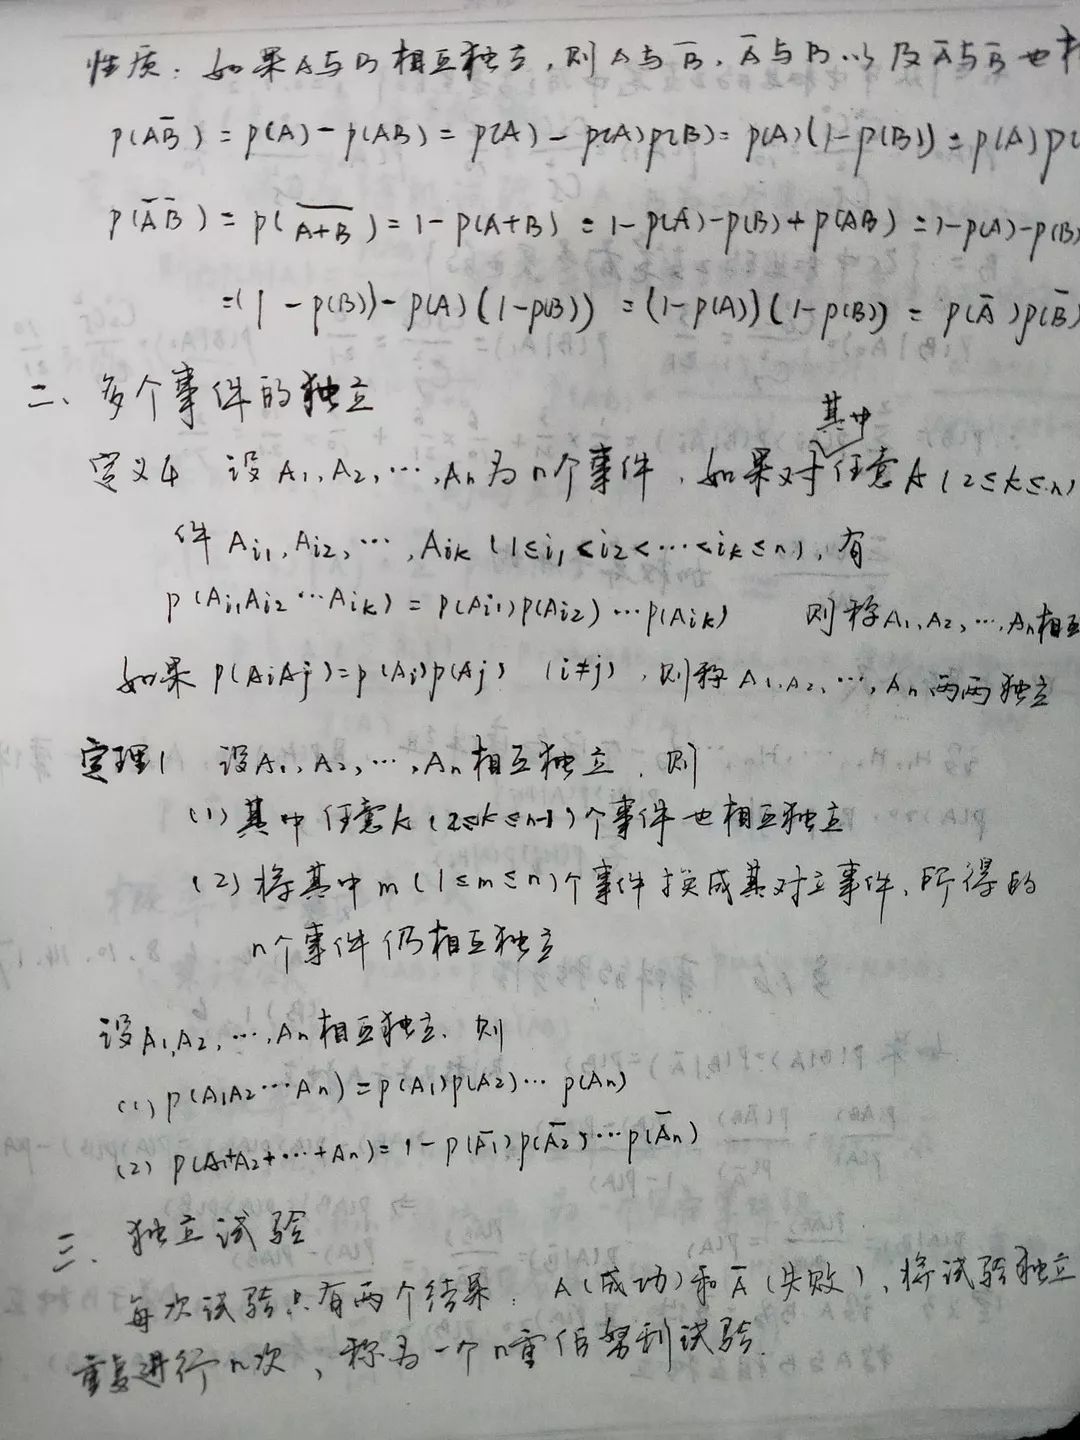 性质：如果A与B相互独立，则A与B̅，A̅与B以及A̅与B̅也相
p(AB̅) = p(A) - p(AB) = p(A) - p(A)p(B) = p(A)(1-p(B)) = p(A)p(
p(A̅ B̅) = p(\overline{A+B}) = 1 - p(A+B) = 1 - p(A) - p(B) + p(AB) = 1 - p(A) - p(B)
=(1 - p(B)) - p(A)(1-p(B)) = (1-p(A))(1-p(B)) = p(A̅)p(B̅)
二、多个事件的独立
其中
定义4 设A₁,A₂,…,Aₙ为n个事件，如果对任意k(2≤k≤n)
件 Aᵢ₁,Aᵢ₂,…,Aᵢₖ (1≤i₁<i₂<…<iₖ≤n)，有
p(Aᵢ₁Aᵢ₂…Aᵢₖ) = p(Aᵢ₁)p(Aᵢ₂)…p(Aᵢₖ) 则称A₁,A₂,…,Aₙ相互
如果 p(AᵢAⱼ)=p(Aᵢ)p(Aⱼ) (i≠j)，则称A₁,A₂,…,Aₙ两两独立
定理1 设A₁,A₂,…,Aₙ相互独立，则
(1) 其中任意k(2≤k≤n-1)个事件也相互独立
(2) 将其中m(1≤m≤n)个事件换成其对立事件，所得的
n个事件仍相互独立
设A₁,A₂,…,Aₙ相互独立，则
(1) p(A₁A₂…Aₙ)=p(A₁)p(A₂)…p(Aₙ)
(2) p(A₁+A₂+…+Aₙ)=1-p(A̅₁)p(A̅₂)…p(A̅ₙ)
三、独立试验
每次试验只有两个结果：A(成功)和A̅(失败)，将试验独立
重复进行n次，称为一个n重伯努利试验.